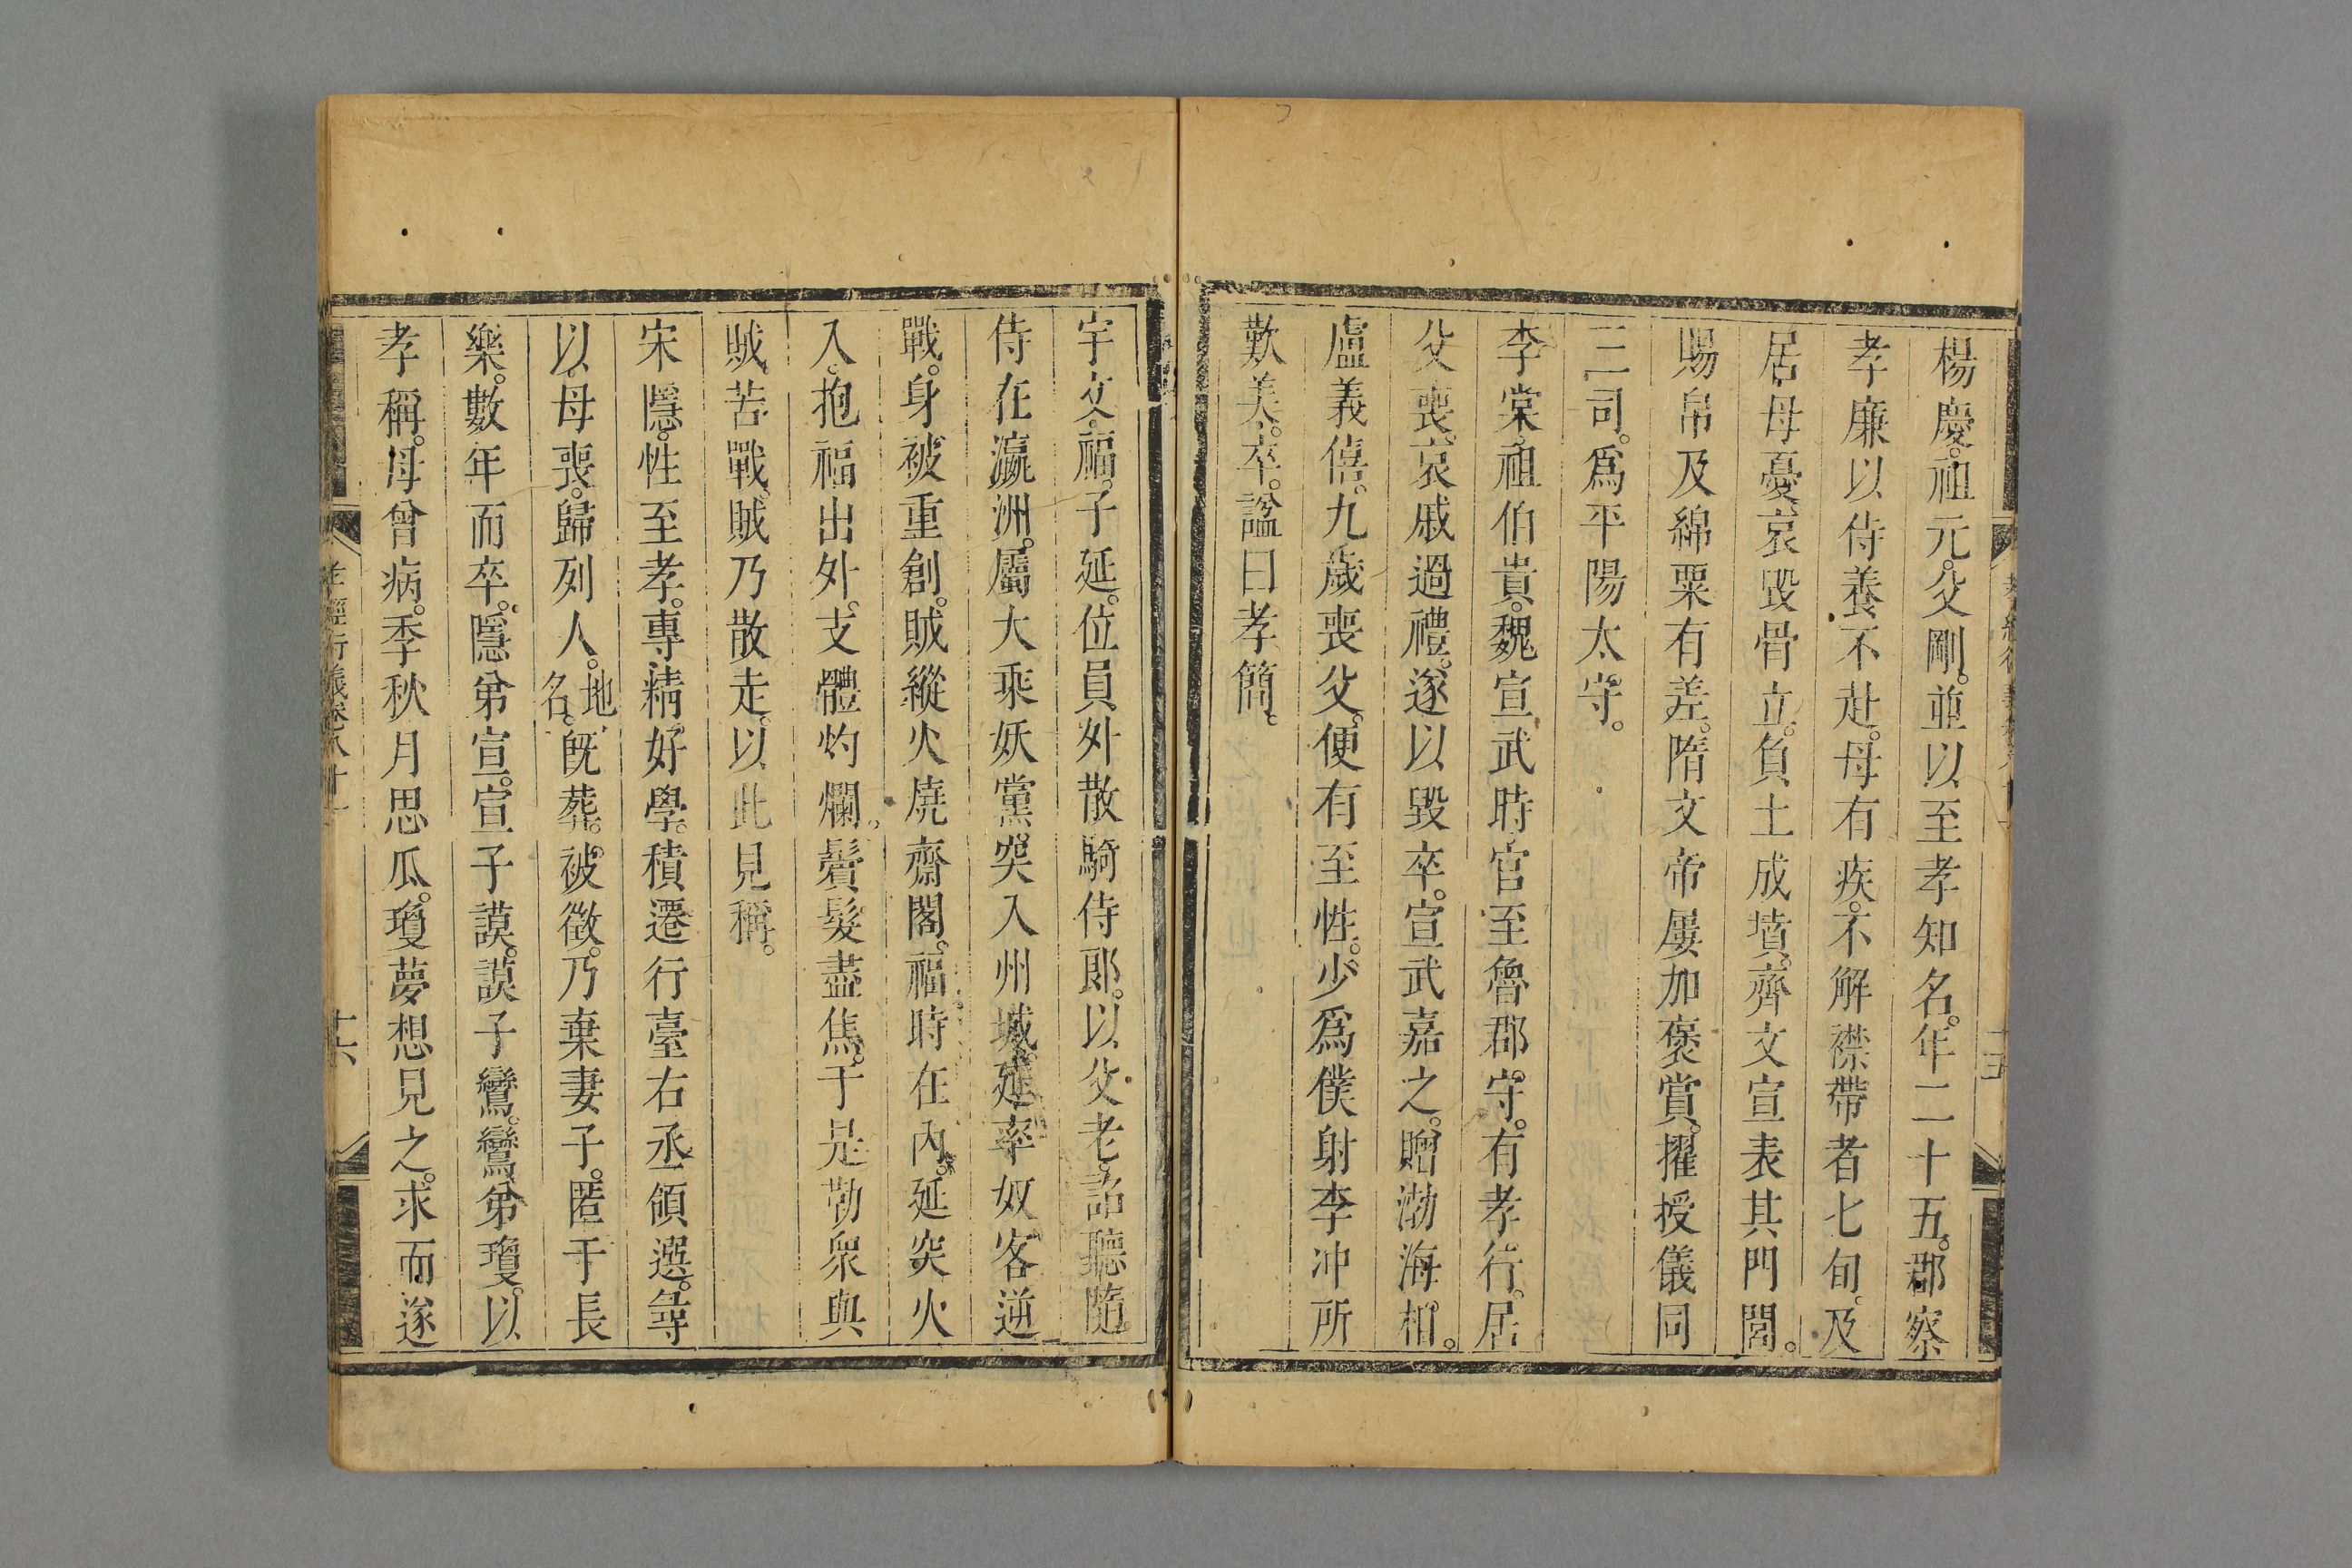 楊慶。祖元。父剛。並以至孝知名。年二十五。郡察
孝廉以侍養不赴。母有疾。不解襟帶者七旬。及
居母憂。哀毀骨立。負土成墳。齊文宣表其門閭。
賜帛及綿粟有差。隋文帝屢加褒賞。擢授儀同
三司。爲平陽太守。
李棠。祖伯貴。魏宣武時官至魯郡守。有孝行。居
父喪。哀戚過禮。遂以毀卒。宣武嘉之。贈渤海相。
盧義僖。九歲喪父。便有至性。少爲僕射李冲所
歎美。卒。諡曰孝簡。
宇文福。子延。位員外散騎侍郎。以父老。詔聽隨
侍在瀛洲。屬大乘妖黨突入州城。延率奴客逆
戰。身被重創。賊縱火燒齋閣。福時在內。延突火
入。抱福出外。支體灼爛。鬢髮盡焦。于是勒衆與
賊苦戰。賊乃散走。以此見稱。
宋隱。性至孝。專精好學。積遷行臺右丞領選。尋
以母喪。歸列人。地名。旣葬。被徵。乃棄妻子。匿于長
樂。數年而卒。隱弟宣。宣子謨。謨子鸞。鸞弟瓊。以
孝稱。母曾病。季秋月思瓜。瓊夢想見之。求而遂
孝經衍義卷八十一
十六